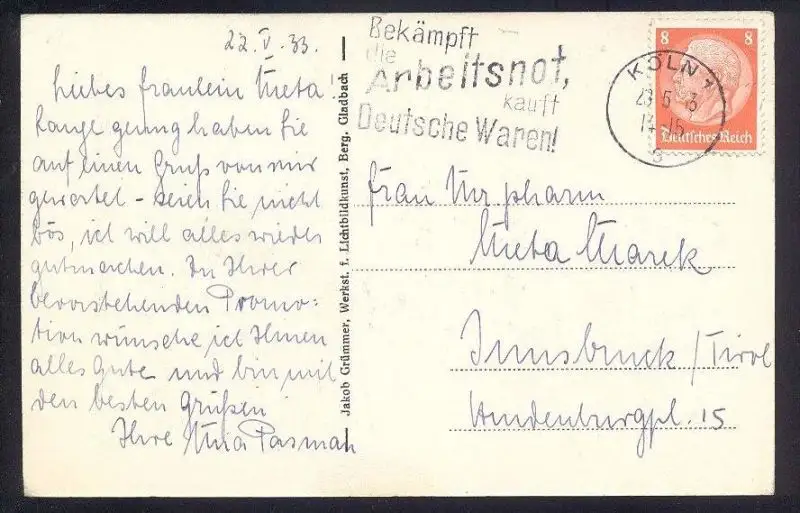 22. V. 33.
Liebes Fräulein Meta!
Lange genug haben Sie
auf einen Gruß von mir
gewartet - seien Sie nicht
bös, ich will alles wieder
gutmachen. Zu Ihrer
bevorstehenden Promo-
tion wünsche ich Ihnen
alles Gute und bin mit
den besten Grüßen
Ihre Mia
Jakob Grümmer, Werkst. f. Lichtbildkunst, Berg. Gladbach
Bekämpft
die
Arbeitsnot,
kauft
Deutsche Waren!
KÖLN 1
23 5 3
14-15
8 8
Deutsches Reich
Frau pharm
Meta Marek
Innsbruck / Tirol
15